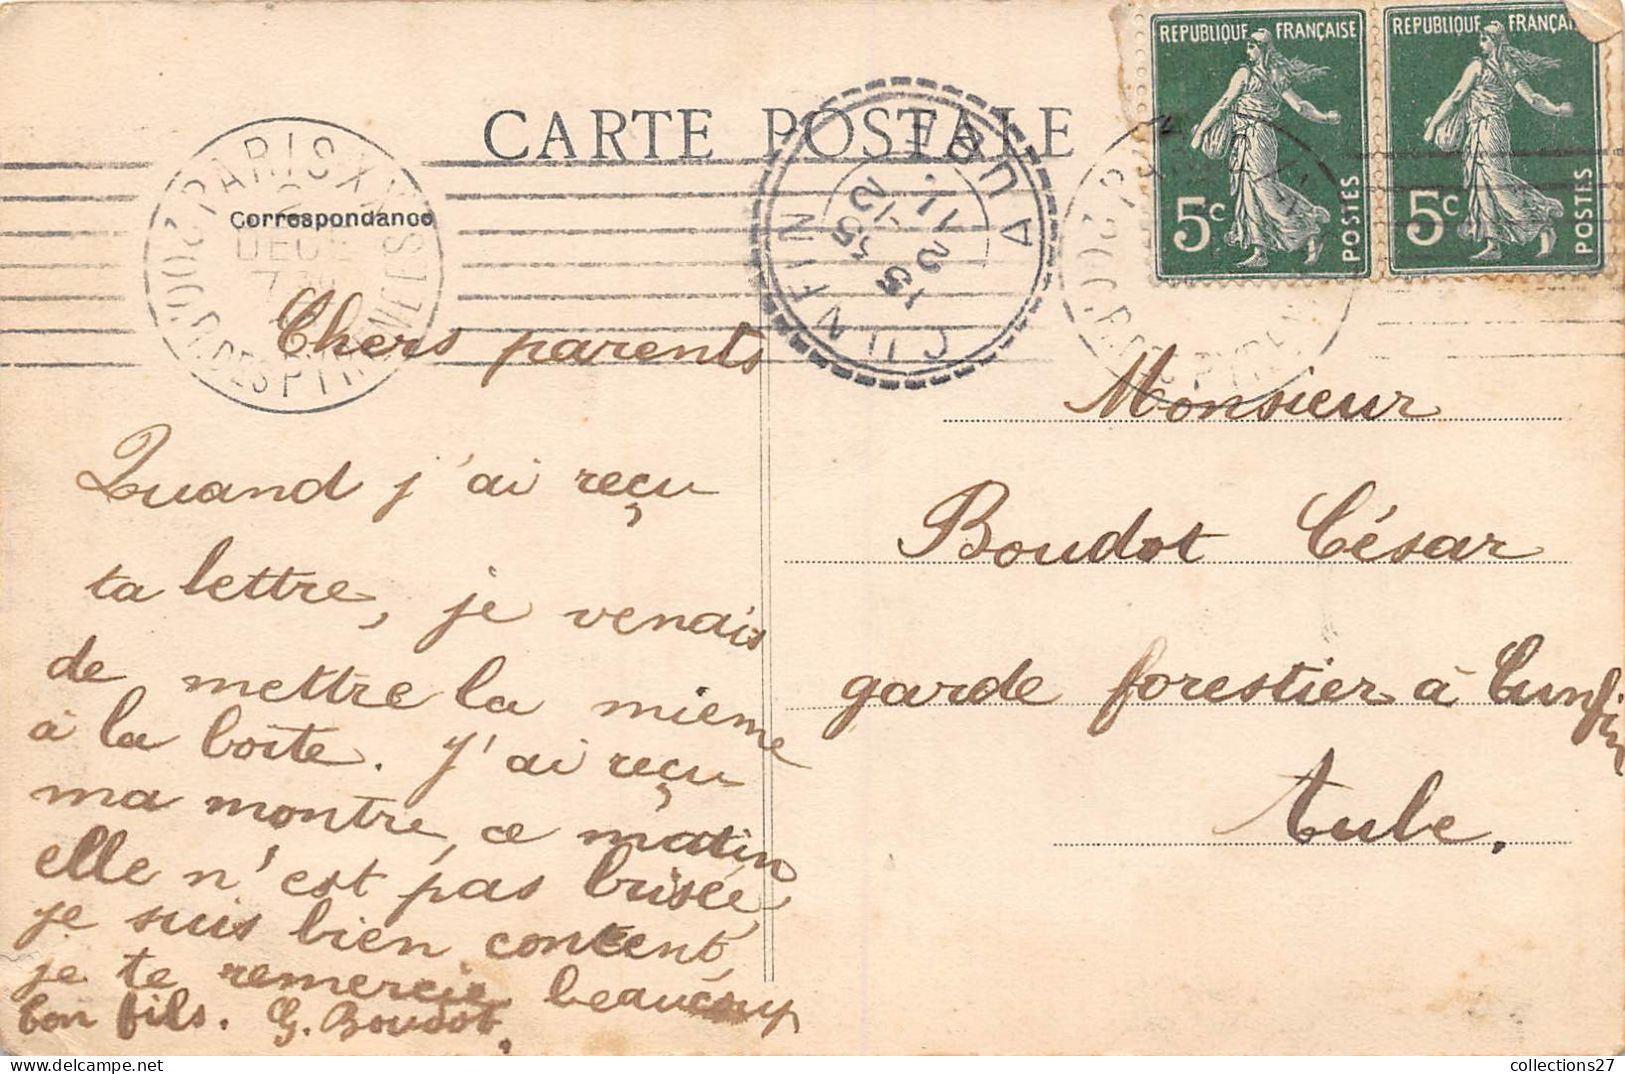 CARTE POSTALE
REPUBLIQUE FRANÇAISE
5c
POSTES
REPUBLIQUE FRANÇAI
5c
POSTES
PARIS X
DEC
R. DES PYRENEES
CUNFIN
AUBE
Correspondance
Chers parents
Quand j'ai reçu
ta lettre, je venais
de mettre la mienne
à la boite. J'ai reçu
ma montre, ce matin
elle n'est pas brisée,
je suis bien content,
je te remercie beaucoup
ton fils. G. Boudot.
Monsieur
Boudot César
garde forestier à Cunfin
Aube.
collections27